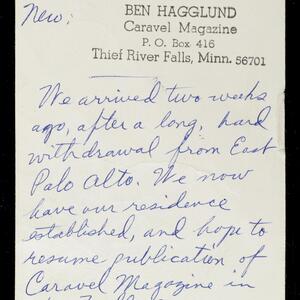 New:
BEN HAGGLUND
Caravel Magazine
P. O. Box 416
Thief River Falls, Minn. 56701
We arrived two weeks
ago, after a long, hard
withdrawal from East
Palo Alto. We now
have our residence
established, and hope to
resume publication of
Caravel Magazine in